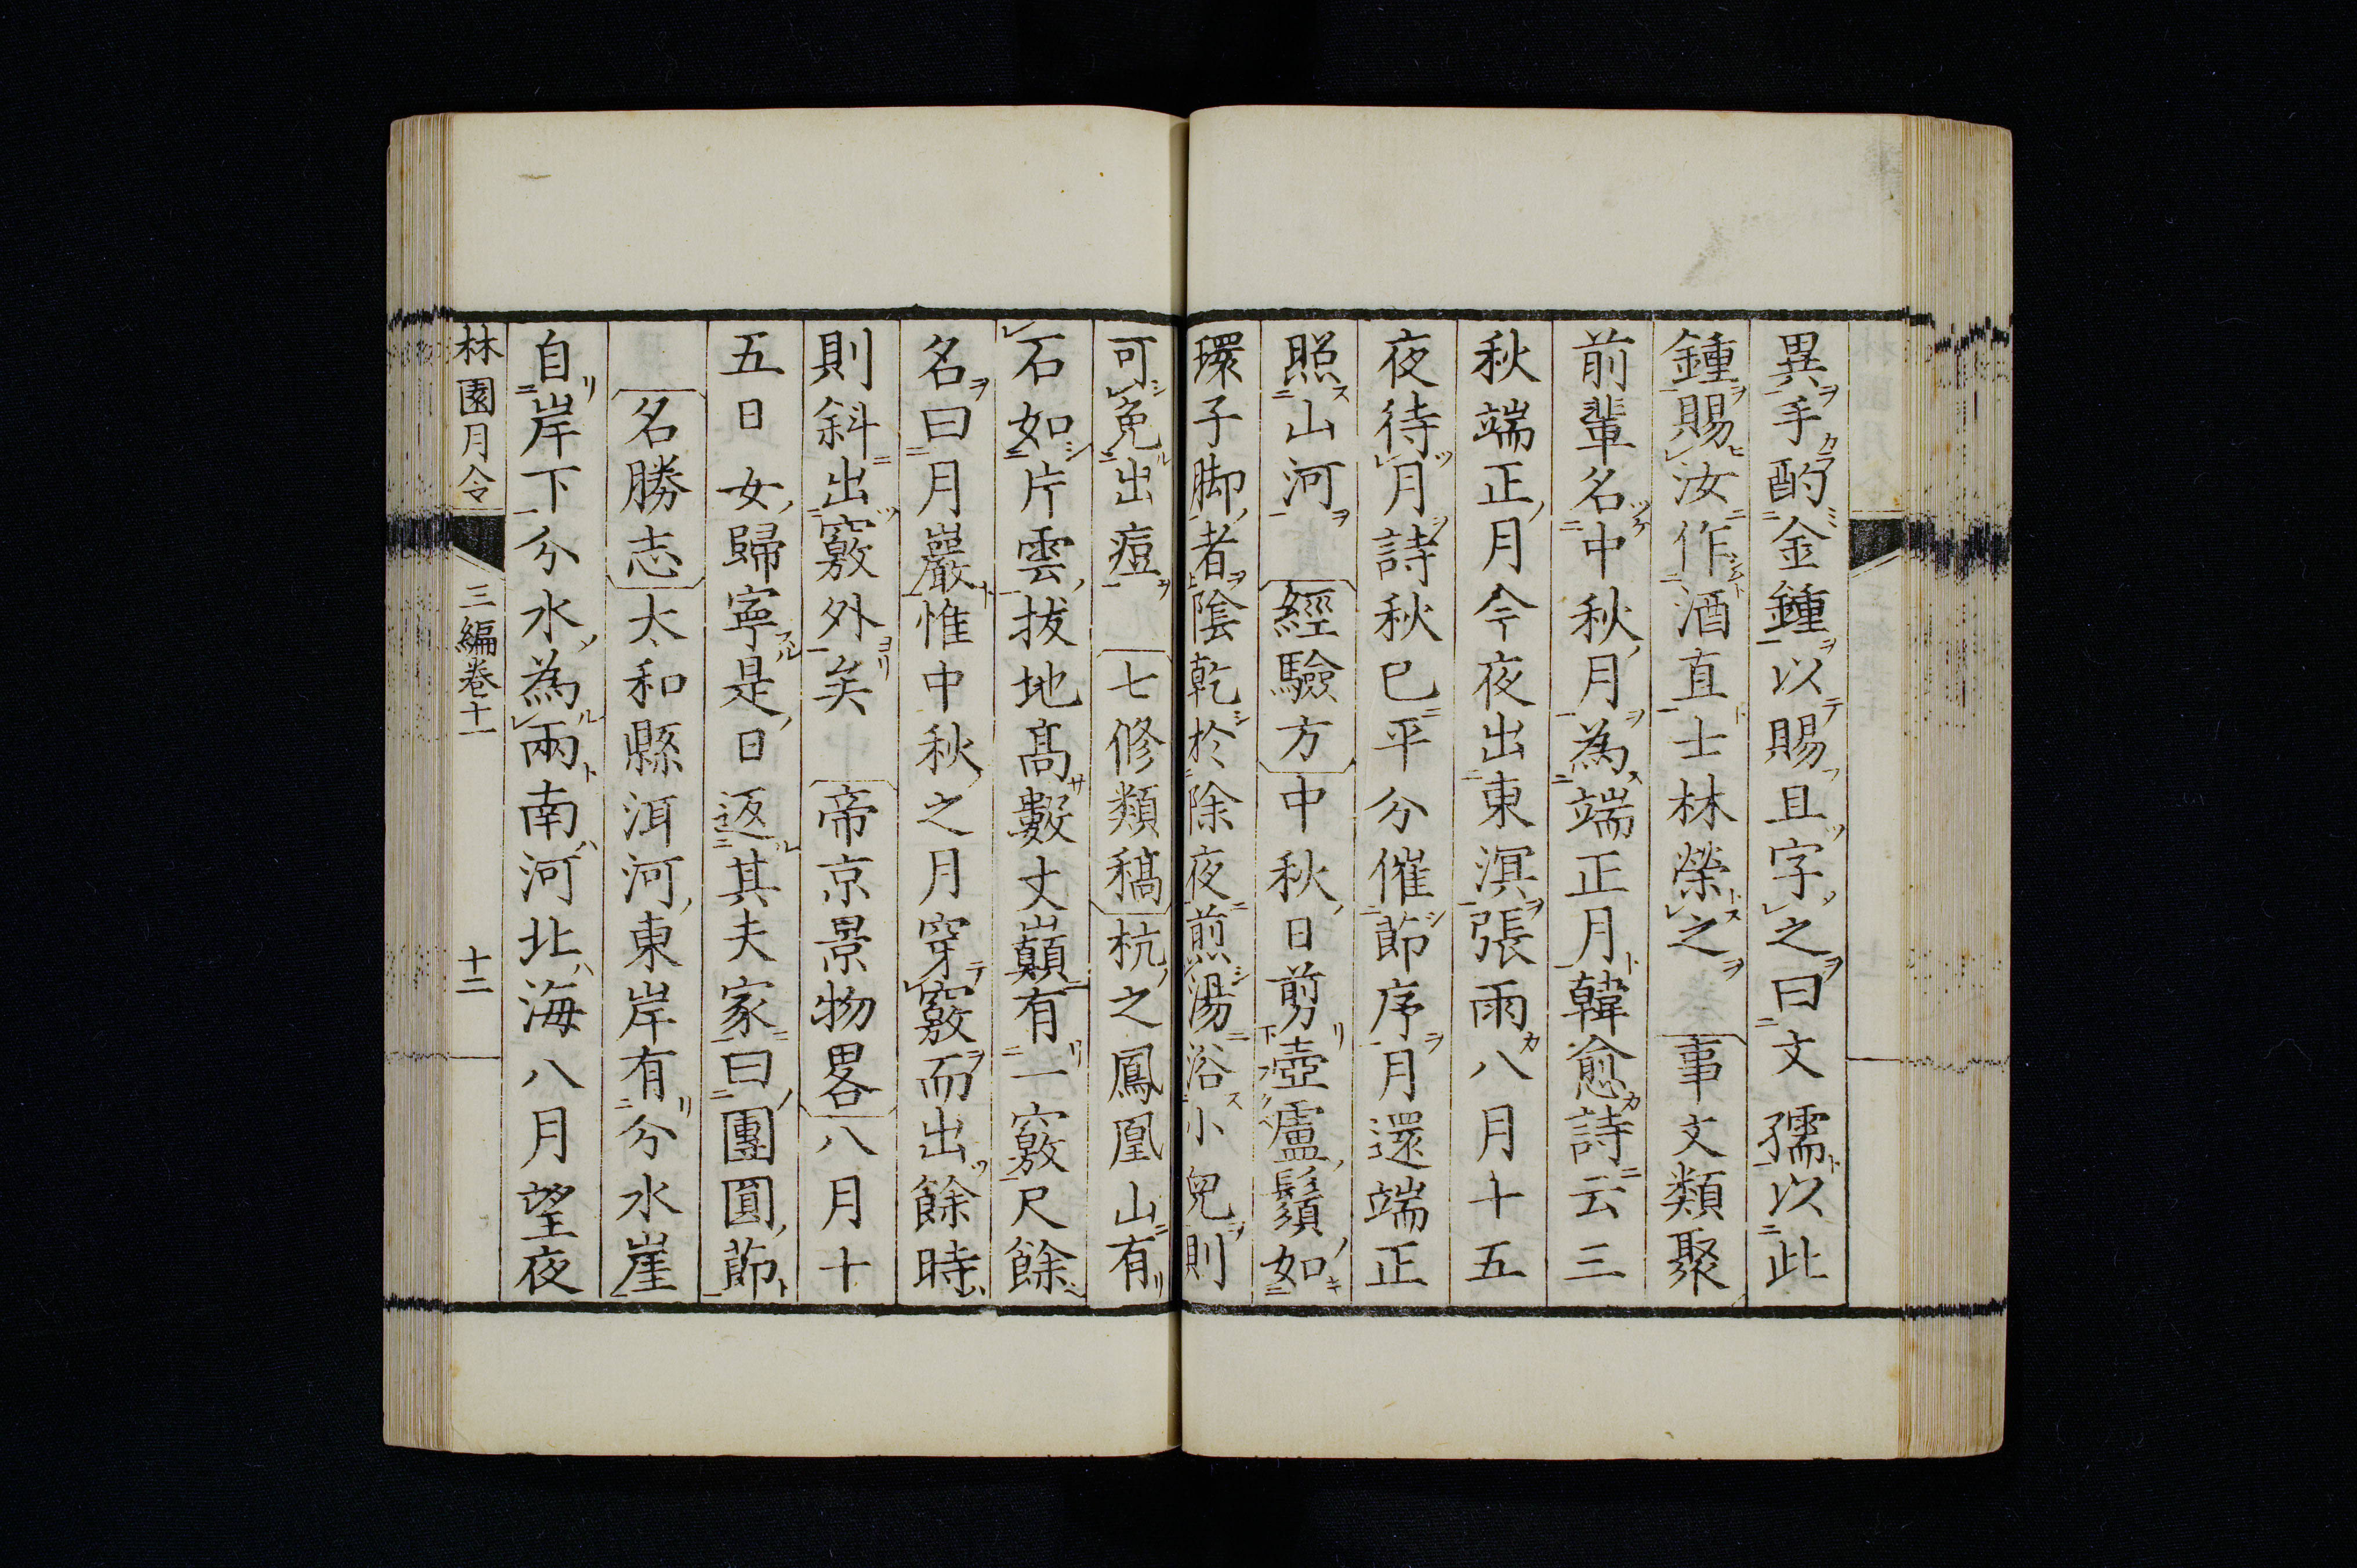 異手酌金鍾以賜且字之曰文孺以此
鍾賜汝作酒直士林榮之 事文類聚
前輩名中秋月為端正月韓愈詩云三
秋端正月今夜出東溟張雨八月十五
夜待月詩秋已平分催節序月還端正
照山河 經驗方 中秋日剪壺盧鬚如
環子脚者陰乾於除夜煎湯浴小兒則
可免出痘 七修類稿 杭之鳳凰山有
石如片雲拔地高數丈巓有一竅尺餘
名曰月巖惟中秋之月穿竅而出餘時
則斜出竅外矣 帝京景物畧 八月十
五日女歸寧是日返其夫家曰團圓節
名勝志 太和縣洱河東岸有分水崖
自岸下分水為兩南河北海八月望夜
林園月令 三編卷十一 十二